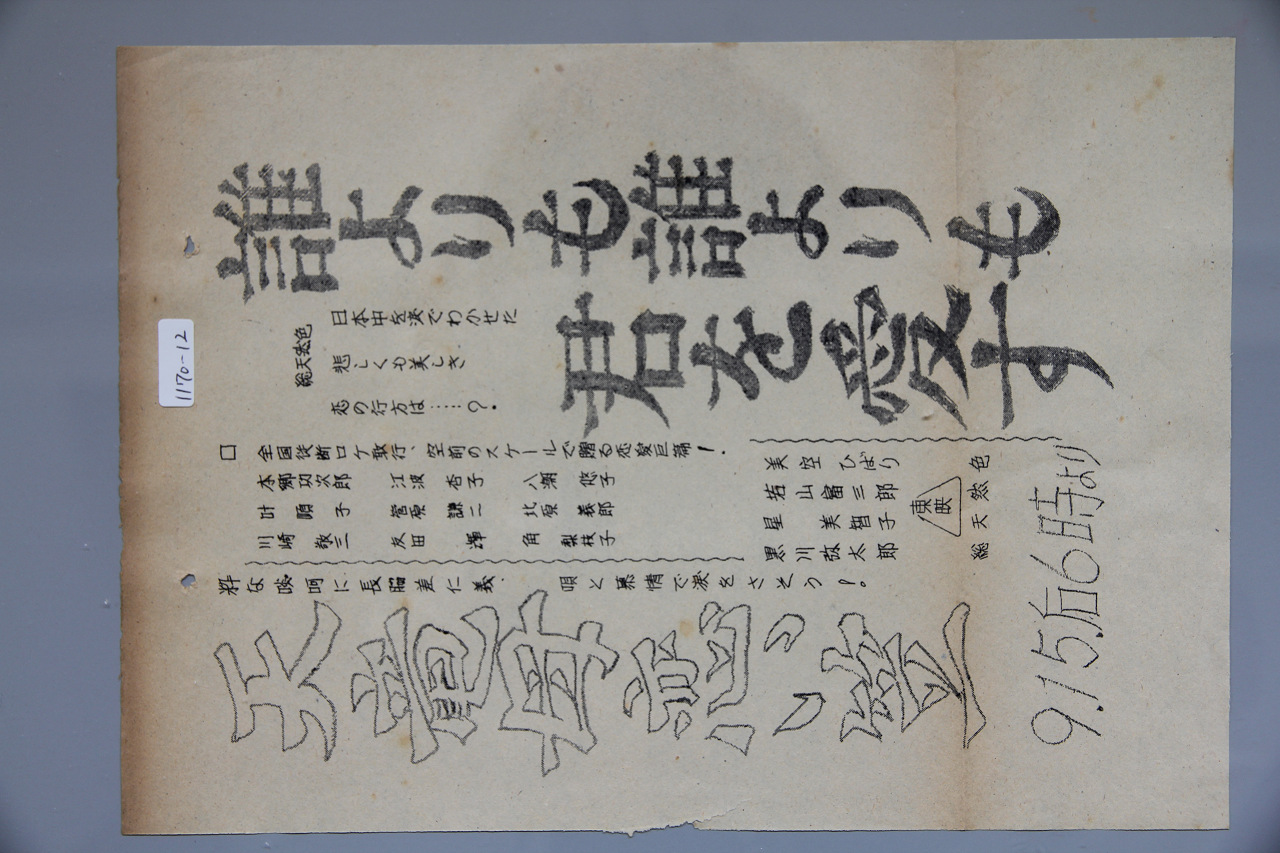 1170-12
誰よりも誰よりも
君を愛す
総天然色
日本中を涙でわかせた
悲しくも美しき
恋の行方は……?
□ 全国縦断ロケ敢行、空前のスケールで贈る恋愛巨篇!
本郷功次郎 江波杏子 八潮悠子
叶順子 菅原謙二 北原義郎
川崎敬三 友田輝 角梨枝子
美空ひばり
若山富三郎
星美智子
黒川弥太郎
東映
総天然色
粋な啖呵に長脇差仁義 唄と慕情で涙をさそう!。
天竜母恋い笠
9.15.后6時より